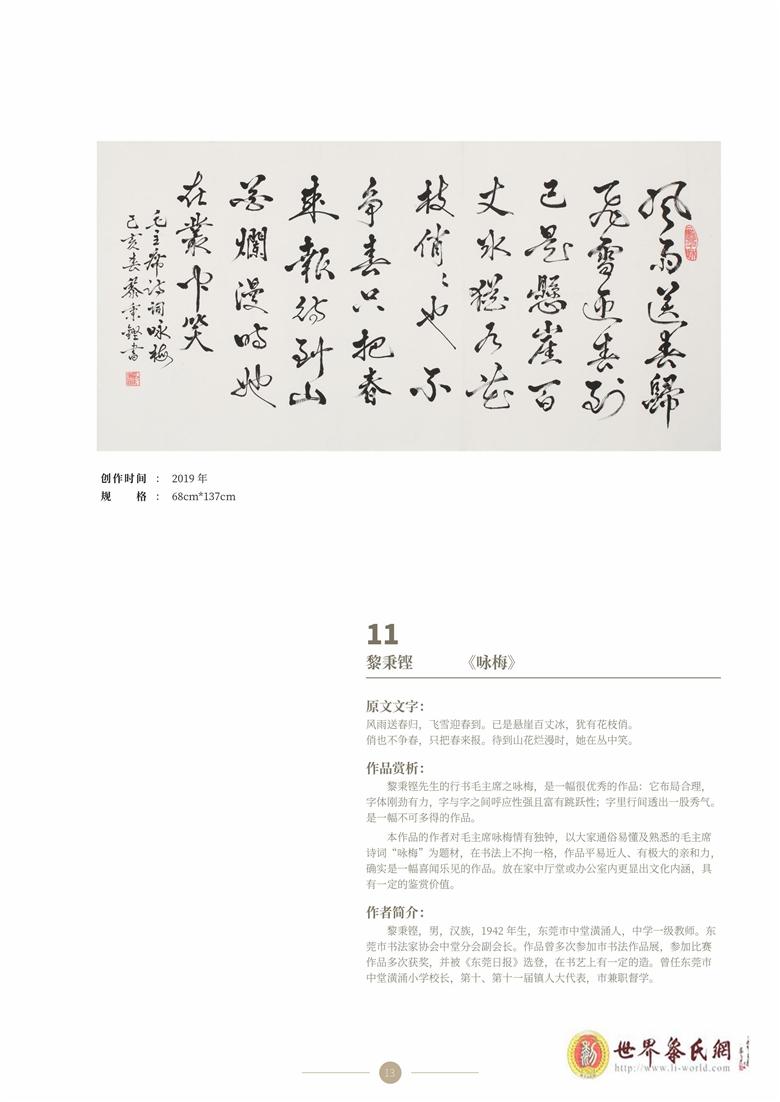 風雨送春歸
飛雪迎春到
已是懸崖百
丈冰猶有花
枝俏〻也不
争春只把春
來報待到山
花爛漫時她
在叢中笑
毛主席詩詞咏梅
己亥春黎秉鏗書
创作时间 ： 2019 年
规 格 ： 68cm*137cm
11
黎秉铿 《咏梅》
原文文字：
风雨送春归，飞雪迎春到。已是悬崖百丈冰，犹有花枝俏。
俏也不争春，只把春来报。待到山花烂漫时，她在丛中笑。
作品赏析：
黎秉铿先生的行书毛主席之咏梅，是一幅很优秀的作品：它布局合理，
字体刚劲有力，字与字之间呼应性强且富有跳跃性；字里行间透出一股秀气。
是一幅不可多得的作品。
本作品的作者对毛主席咏梅情有独钟，以大家通俗易懂及熟悉的毛主席
诗词“咏梅”为题材，在书法上不拘一格，作品平易近人、有极大的亲和力，
确实是一幅喜闻乐见的作品。放在家中厅堂或办公室内更显出文化内涵，具
有一定的鉴赏价值。
作者简介：
黎秉铿，男，汉族，1942 年生，东莞市中堂潢涌人，中学一级教师。东
莞市书法家协会中堂分会副会长。作品曾多次参加市书法作品展，参加比赛
作品多次获奖，并被《东莞日报》选登，在书艺上有一定的造。曾任东莞市
中堂潢涌小学校长，第十、第十一届镇人大代表，市兼职督学。
13
世界黎氏網
http://www.li-world.com